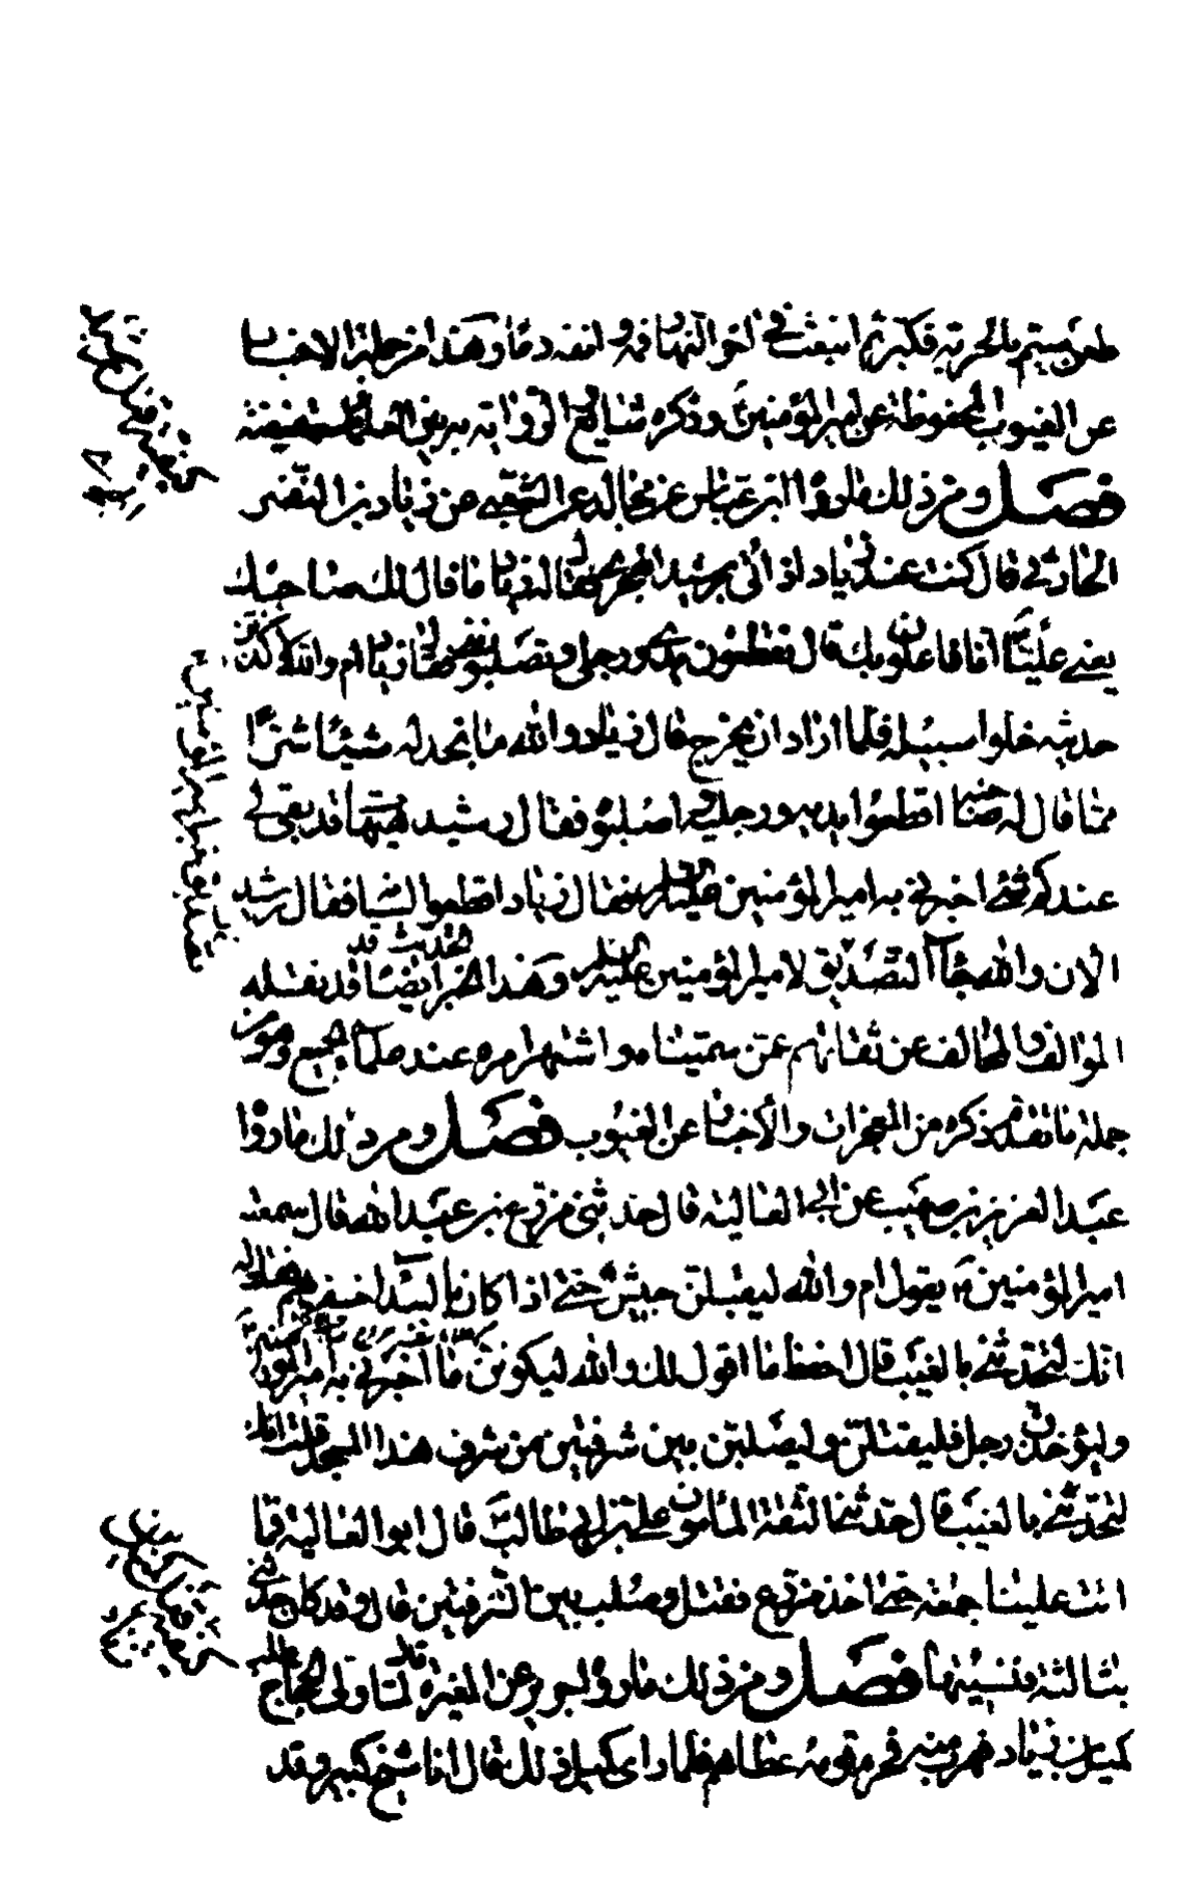 طعن ميثم بالحربة فكبر ثم انبعث في اخر النهار فمه و انفه دما و هذا من جملة الاخبار
عن الغيوب المحفوظة عن امير المؤمنين ع و ذكره شايع و الرواية به بين العلماء مستفيضة
فصل و من ذلك ما رووا ابن عياش عن مجالد عن الشعبي عن زياد بن النضر
الحارثي قال كنت عند زياد اذ اتى برشيد الهجري فقال له زياد ما قال لك صاحبك
يعني عليا ع انا فاعلون بك قال تقطعون يدي و رجلي و تصلبونني فقال زياد ام والله لاكذبن
حديثه خلوا سبيله فلما اراد ان يخرج قال زياد والله ما نجد له شيئا شرا
مما قال له صاحبه اقطعوا يديه و رجليه و اصلبوه فقال رشيد هيهات قد بقى لي
عندكم شئ اخبرني به امير المؤمنين عليه السلام فقال زياد اقطعوا لسانه فقال رشيد
الان والله جاء التصديق لامير المؤمنين عليه السلام و هذا الخبر ايضا قد نقله
المؤالف و المخالف عن ثقاتهم عمن سميناه و اشتهر امره عند علماء الجميع و هو من
جملة ما تقدم ذكره من المعجزات و الاخبار عن الغيوب فصل و من ذلك ما رووا
عبد العزيز بن صهيب عن ابي العالية قال حدثني مزرع بن عبد الله قال سمعت
امير المؤمنين ع يقول ام والله ليقبلن جيش حتى اذا كان بالبيداء خسف بهم فقلت له
انك لتحدثني بالغيب قال احفظ ما اقول لك والله ليكونن ما اخبرني به امير المؤمنين
و ليؤخذن رجل فليقتلن و ليصلبن بين شرفتين من شرف هذا المسجد قلت انك
لتحدثني بالغيب قال حدثني الثقة المأمون علي بن ابي طالب ع قال ابو العالية فما
اتت علينا جمعة حتى اخذ مزرع فقتل و صلب بين الشرفتين قال و قد كان حدثني
بثالثة فنسيتها فصل و من ذلك ما رووا جرير عن المغيرة قال لما ولى الحجاج طلب
كميل بن زياد فهرب منه فحرم قومه عطاهم فلما راى كميل ذلك قال انا شيخ كبير و قد